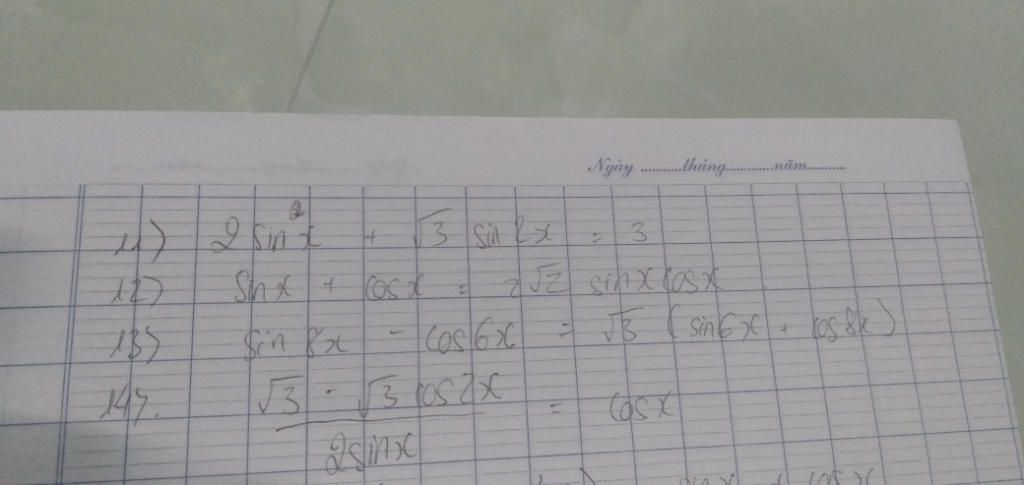 Ngày ..........tháng............năm..........
11) 2 sin²x + √3 sin 2x = 3
12) sinx + cosx = 2√2 sinx cosx
13) sin 8x - cos 6x = √3 (sin 6x + cos 8x)
14). (√3 - √3 cos 2x)/(2 sinx) = cosx
sinx + cosx